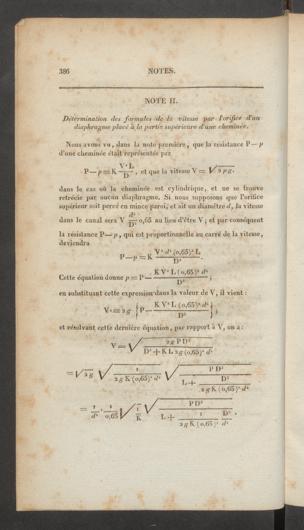 386 NOTES.
NOTE II.
Détermination des formules de la vitesse par l'orifice d'un
diaphragme placé à la partie supérieure d'une cheminée.
Nous avons vu, dans la note première, que la résistance P—p
d'une cheminée était représentée par
P—p = K V² L / D , et que la vitesse V = √2 p g.
dans le cas où la cheminée est cylindrique, et ne se trouve
rétrécie par aucun diaphragme. Si nous supposons que l'orifice
supérieur soit percé en mince paroi, et ait un diamètre d, la vitesse
dans le canal sera V d²/D² 0,65 au lieu d'être V ; et par conséquent
la résistance P—p, qui est proportionnelle au carré de la vitesse,
deviendra
P—p = K V² d⁴ (0,65)² L / D⁵ .
Cette équation donne p = P — K V² L (0,65)² d⁴ / D⁵ ;
en substituant cette expression dans la valeur de V, il vient :
V² = 2g { P — K V² L (0,65)² d⁴ / D⁵ } ,
et résolvant cette dernière équation, par rapport à V, on a :
V = √ 2g P D⁵ / D⁵ + K L 2g (0,65)² d⁴
= √2g √ 1 / 2g K (0,65)² d⁴ √ P D⁵ / L + 1 / 2g K (0,65)² D⁵ / d⁴
= 1/d² . 1/0,65 √ 1/K √ P D⁵ / L + 1 / 2g K (0,65)² D⁵ / d⁴ .